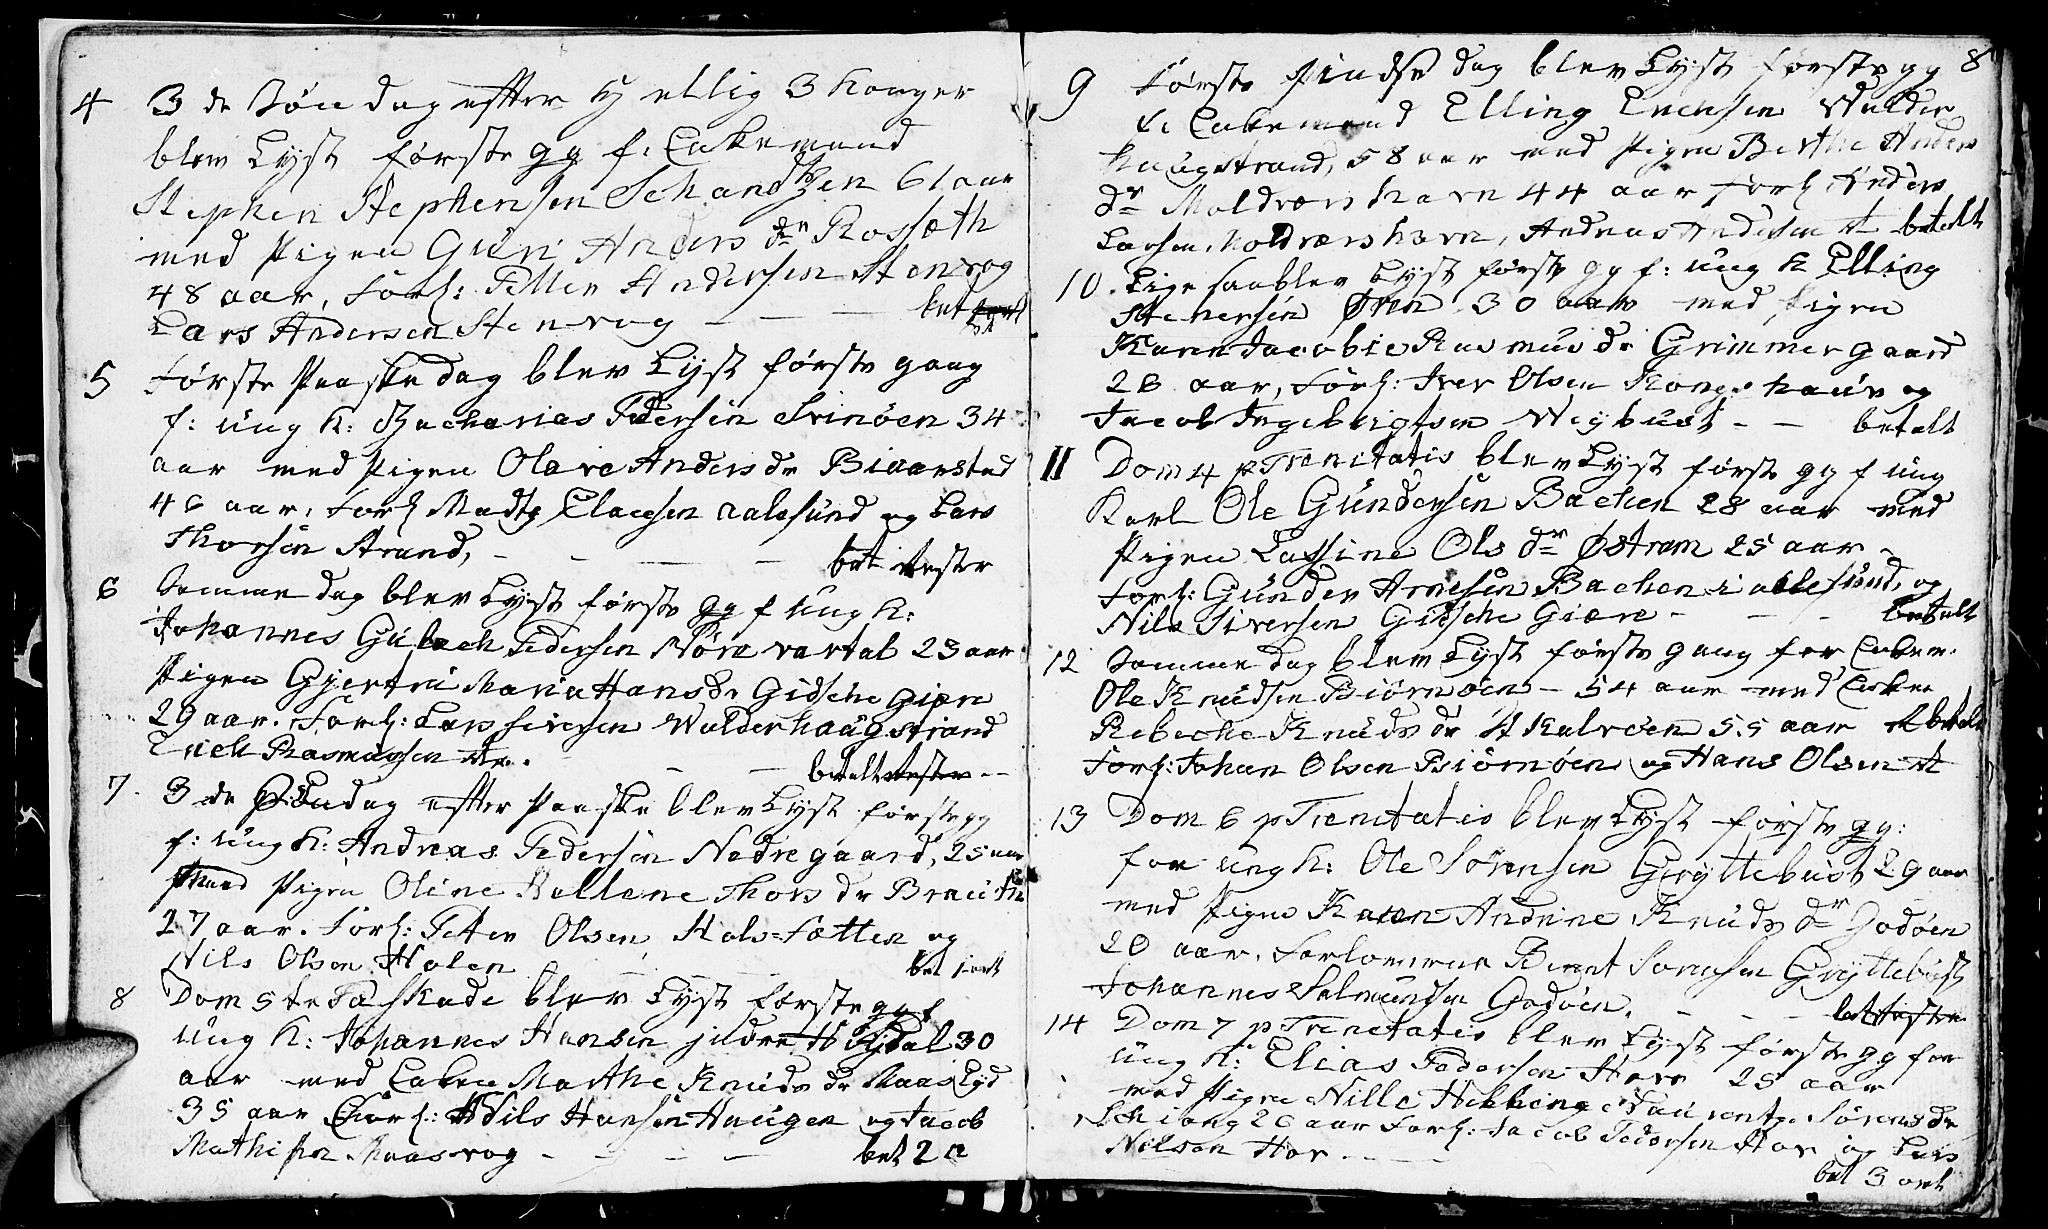 4 3 de Søndag efter Hellig 3 Konger
blev Lyst første gg f. Enkemand
Stephen Stephensen Schandtzen 61 aar
med Pigen Guri Anders dr Rossæth
48 aar, Forl: Petter Andersen Stenvog
Lars Andersen Stenvog - - - bet
5 Første Paaskedag blev Lyst første gang
f: ung K: Zacharies Pedersen Svinøen 34
aar med Pigen Olave Anders dr Biaarstad
46 aar, Forl Madts Claesen Aalesund og Lars
Thorsen Strand, - - - bet
6 Samme dag blev Lyst første gg f ung K:
Johannes Gubach Pedersen Nøre vartal 23 aar
Pigen Gjertru Maria Hans dr Gidsche Giær
29 aar. Forl: Lars Siversen Walderhaugstrand
Erich Rasmussen - - - betalt
7. 3 de Søndag efter Paaske blev Lyst første gg
f: ung K: Andreas Pedersen Nedregaard, 25 aar
med Pigen Oline Hellene Thors dr Brauth
27 aar. Forl: Petter Olsen, Kals=Fætten og
Nils Olsen Holen - - bet 1 ort
8 Dom 5 te Paaskade blev Lyst første gg f
ung K: Johannes Hansen jndre H Rydal 30
aar med Enken Marthe Knuds dr Maas Lyd
35 aar Forl: Nils Hansen Haugen og Jacob
Mathisen Maasvog - - - - bet 2
8
9 Første Pindse dag blev Lyst første gg
f: Enkemand Elling Erichsen Walder
haugstrand, 58 aar med Pigen Berthe Anders
dr Moldværshavn 44 aar forl Anders
Larsen Moldværshavn, Andreas Andersen betalt
10. Ligesaa blev Lyst første gg f: ung K Elling
Stenersen Øren 30 aar med Pigen
Karen Jacobie Rasmus dr Grimmergaard
28 aar, Forl: Iver Olsen Kongshaug og
Jacob Ingebrigtsen Weybust - - betalt
11 Dom 4 p Trenitatis blev Lyst første gg f ung
Karl Ole Gundersen Bachen 28 aar med
Pigen Lassine Ols dr Østrem 25 aar -
Forl: Gunder Arnesen Bachen i Allesund, og
Nils Siversen Gidsche Giære - - - betalt
12 Samme dag blev Lyst første gang for Enkem.
Ole Knudsen Biørnøen - 54 aar med Enken
Rebecke Knuds dr Kalvøen 55 aar betalt
Forl: Johan Olsen Biørnøen og Hans Olsen
13 Dom 6 p Trenitatis blev Lyst første gg:
for ung K: Ole Sørensen Gryttebust 29 aar
med Pigen Karen Andrine Knuds dr Godøen
20 aar. Forloverne Bernt Sørensen Gryttebust
Johannes Salmundsen Godøen. - - - bet
14 Dom 7 p Trenetatis blev Lyst første gg for
ung K: Elias Pedersen Hove 25 aar
med Pigen Nille Hebbine Laurentze Sørens dr
Schiong 26 aar Forl: Jacob Pedersen Hov og Lars
Nilsen Hov - - -
bet 3 ort